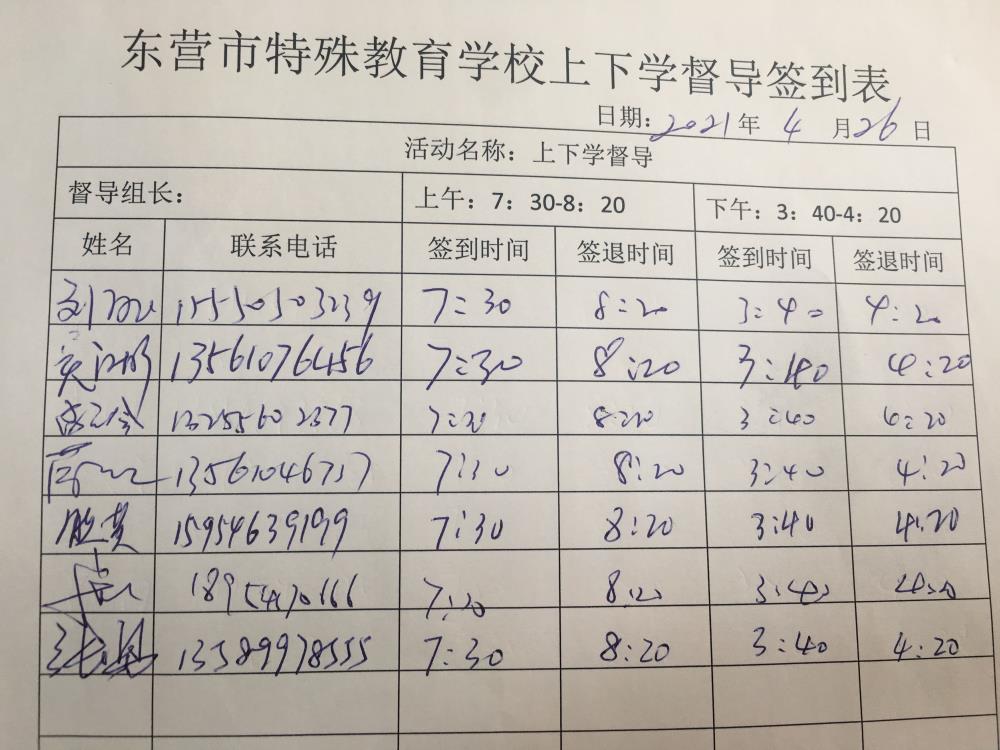 东营市特殊教育学校上下学督导签到表
日期：2021年 4 月26 日
活动名称：上下学督导
督导组长： 上午：7：30-8：20 下午：3：40-4：20
姓名 联系电话 签到时间 签退时间 签到时间 签退时间
15550503239 7:30 8:20 3:40 4:20
13561076456 7:30 8:20 3:40 4:20
13255602377 7:30 8:20 3:40 4:20
13561046717 7:30 8:20 3:40 4:20
15954639199 7:30 8:20 3:40 4:20
18954670166 7:20 8:20 3:40 4:20
13589978555 7:30 8:20 3:40 4:20